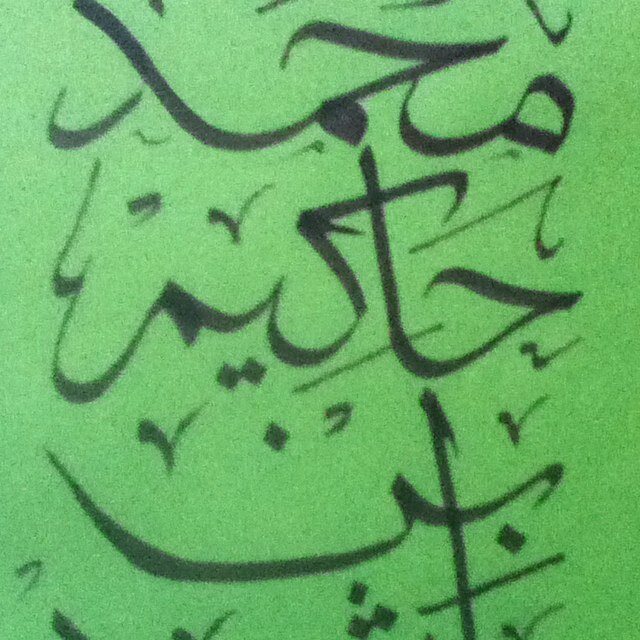 محمد
حاكيم
بن